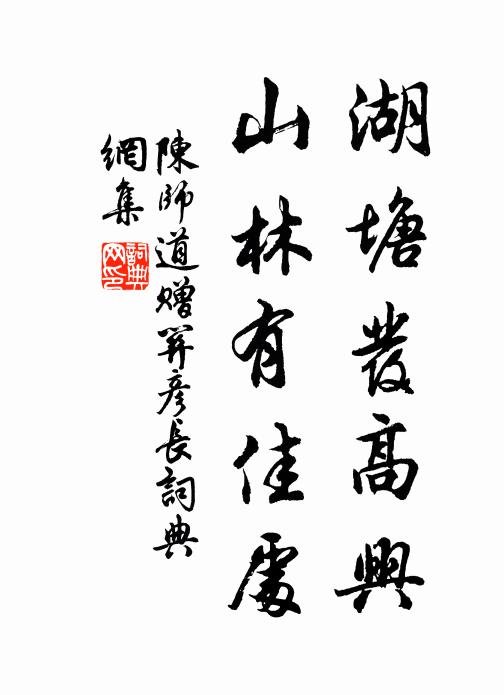 湖塘發高興
山林有佳處
陳師道贈關彥長詞典
網集
詞典
网印